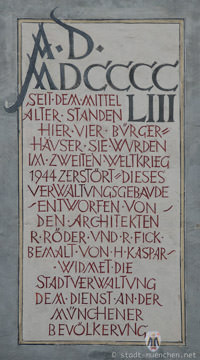 A·D·
MDCCCC
LIII
SEIT·DEM·MITTEL
ALTER·STANDEN
HIER·VIER·BÜRGER-
HÄUSER·SIE·WURDEN
IM·ZWEITEN·WELTKRIEG
1944·ZERSTÖRT·DIESES
VERWALTUNGSGEBÄUDE
–ENTWORFEN·VON–
DEN·ARCHITEKTEN
R·RÖDER·UND·R·FICK·
BEMALT·VON·H·KASPAR-
·WIDMET·DIE
STADTVERWALTUNG
DEM·DIENST·AN·DER
MÜNCHENER
BEVÖLKERUNG
© stadt-muenchen.net